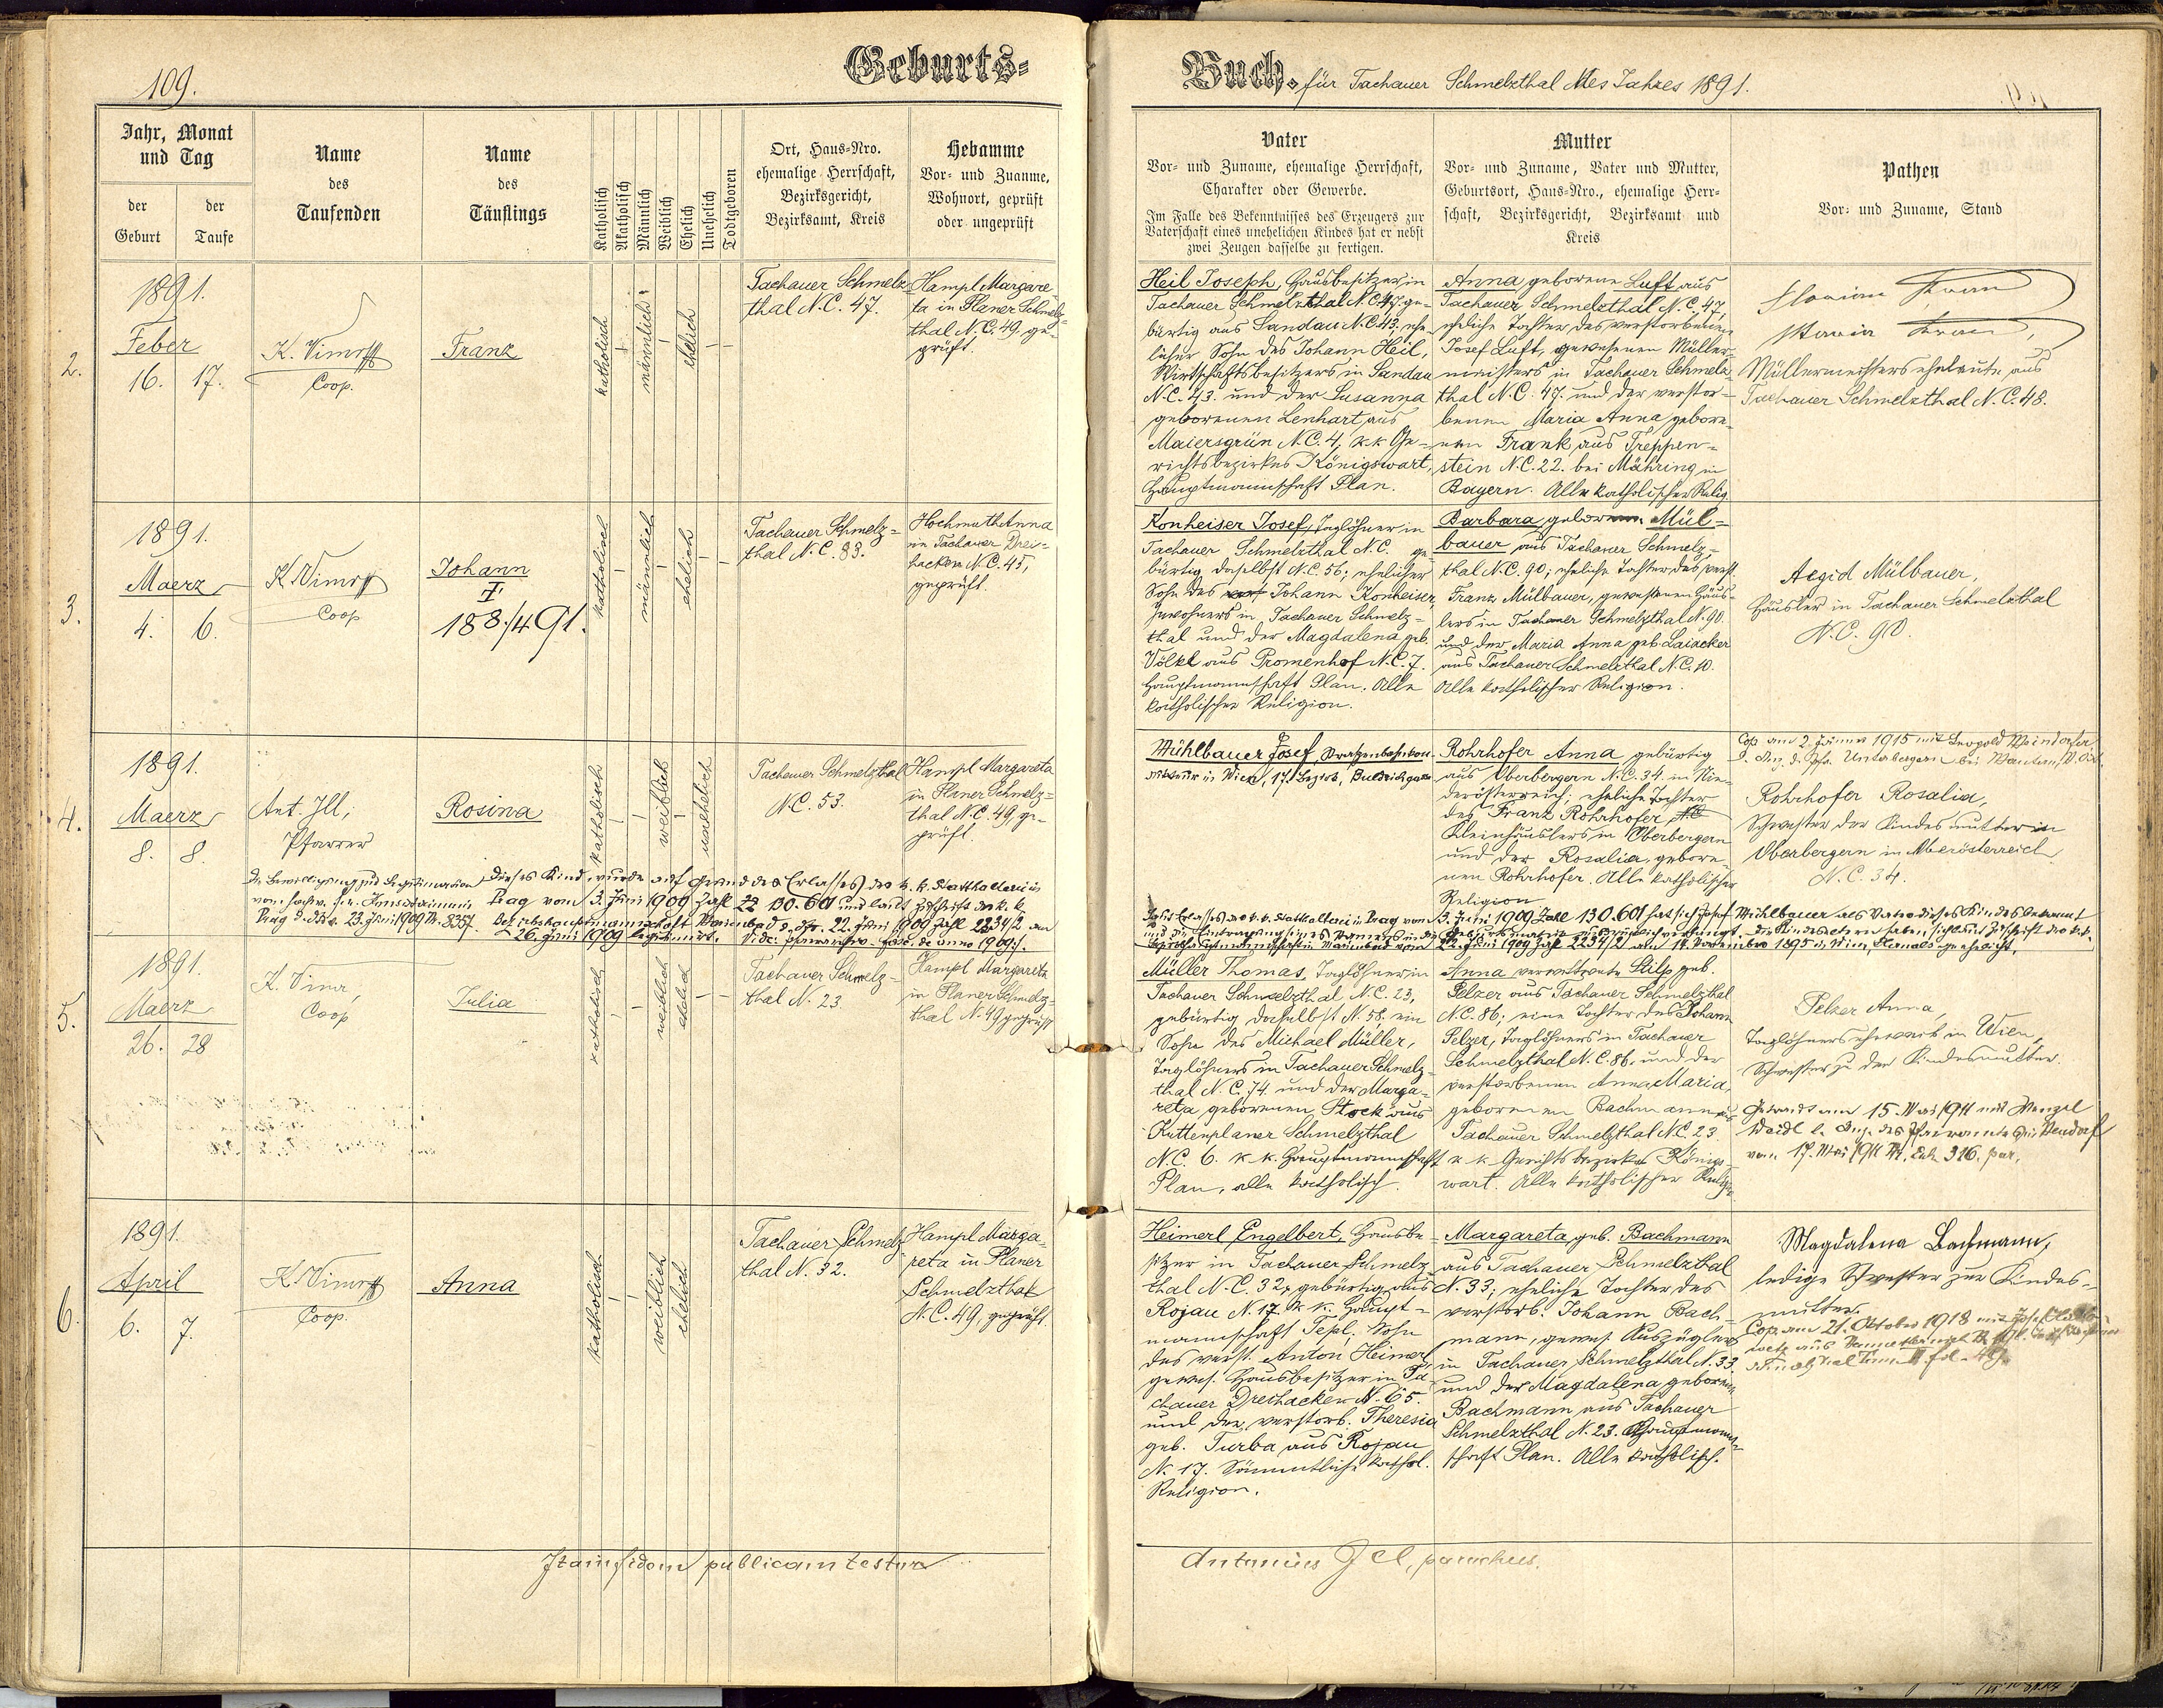 109.
Geburts-
Buch. für Tachauer Schmelzthal des Jahres 1891.
Jahr, Monat
und Tag
der
Geburt
der
Taufe
Name
des
Taufenden
Name
des
Täuflings
Katholisch
Akatholisch
Männlich
Weiblich
Ehelich
Unehelich
Todtgeboren
Ort, Haus-Nro.
ehemalige Herrschaft,
Bezirksgericht,
Bezirksamt, Kreis
Hebamme
Vor- und Zuname,
Wohnort, geprüft
oder ungeprüft
Vater
Vor- und Zuname, ehemalige Herrschaft,
Charakter oder Gewerbe.
Im Falle des Bekenntnisses des Erzeugers zur
Vaterschaft eines unehelichen Kindes hat er nebst
zwei Zeugen dasselbe zu fertigen.
Mutter
Vor- und Zuname, Vater und Mutter,
Geburtsort, Haus-Nro., ehemalige Herr-
schaft, Bezirksgericht, Bezirksamt und
Kreis
Pathen
Vor- und Zuname, Stand
2.
1891.
Feber
16. 17.
K. Vimr
Coop.
Franz
katholisch
männlich
ehelich
Tachauer Schmelz-
thal N.C. 47.
Hampl Margare-
ta in Planer Schmelz-
thal N.C. 49. ge-
prüft.
Heil Joseph, Hausbesitzer in
Tachauer Schmelzthal N.C. 47. ge-
bürtig aus Sandau N.C. 43, ehe-
licher Sohn des Johann Heil,
Wirtschaftsbesitzers in Sandau
N.C. 43. und der Susanna
geborenen Lenhart aus
Maiersgrün N.C. 4, k.k. Ge-
richtsbezirkes Königswart,
Hauptmannschaft Plan.
Anna geborene Luft aus
Tachauer Schmelzthal N.C. 47,
eheliche Tochter des verstorbenen
Josef Luft, gewesenen Müller-
meisters in Tachauer Schmelz-
thal N.C. 47. und der verstor-
benen Maria Anna gebore-
nen Frank aus Treppen-
stein N.C. 22. bei Mähring in
Bayern. Alle katholischer Relig.
Florian
Maria
Müllermeisterseheleute aus
Tachauer Schmelzthal N.C. 48.
3.
1891.
Maerz
4. 6.
K. Vimr
Coop
Johann
I.
188/491.
katholisch
männlich
ehelich
Tachauer Schmelz-
thal N.C. 83.
Hochmuth Anna
in Tachauer Drei-
hacken N.C. 45,
geprüft.
Konheiser Josef, Taglöhner in
Tachauer Schmelzthal N.C. ge-
bürtig daselbst N.C. 56; ehelicher
Sohn des Johann Konheiser,
Inwohners in Tachauer Schmelz-
thal und der Magdalena geb.
Völkl aus Promenhof N.C. 7.
Hauptmannschaft Plan. Alle
katholischer Religion.
Barbara, geborene Mül-
bauer aus Tachauer Schmelz-
thal N.C. 90; eheliche Tochter des verst.
Franz Mülbauer, gewesenen Häus-
lers in Tachauer Schmelzthal N. 90.
und der Maria Anna geb. Laiacker
aus Tachauer Schmelzthal N.C. 10.
Alle katholischer Religion.
Aegid Mülbauer,
Häusler in Tachauer Schmelzthal
N.C. 90.
4.
1891.
Maerz
8. 8.
Ant. Ill,
Pfarrer
Rosina
katholisch
weiblich
unehelich
Tachauer Schmelzthal
N.C. 53.
Hampl Margareta
in Planer Schmelz-
thal N.C. 49, ge-
prüft.
Mühlbauer Josef, Strassenbahnkon-
dukteur in Wien, 17. Bezirk,
Rohrhofer Anna gebürtig
aus Oberbergern N.C. 34. in Nie-
derösterreich; eheliche Tochter
des Franz Rohrhofer,
Kleinhäuslers in Oberbergern
und der Rosalia, gebore-
nen Rohrhofer. Alle katholischer
Religion
Cop. am 2. 1915 mit Leopold
Rohrhofer Rosalia,
Schwester der Kindesmutter in
Oberbergern in Niederösterreich
N.C. 34.
Dieses Kind wurde auf Grund des Erlasses der k.k. Statthalterei in
Prag vom 3. Juni 1909 Zahl 130.601 und laut Zuschrift der k.k.
Bezirkshauptmannschaft Marienbad d. dto. 22. Juni 1909 Zahl 2234/2 am
26. Juni 1909 legitimiert.
Erlasses der k.k. Statthalterei in Prag vom 3. Juni 1909 Zahl 130.601 hat sich Josef Mühlbauer als Vater dieses Kindes bekannt
Bezirkshauptmannschaft in Marienbad vom 22. Juni 1909 Zahl 2234/2 am 14. November 1895 in Wien, Hernals geehelicht.
5.
1891.
Maerz
26. 28
K. Vimr,
Coop
Julia
katholisch
weiblich
ehelich
Tachauer Schmelz-
thal N. 23
Hampl Margareta
in Planer Schmelz-
thal N. 49 geprüft
Müller Thomas, Taglöhner in
Tachauer Schmelzthal N.C. 23,
gebürtig daselbst N. 58. ein
Sohn des Michael Müller,
Taglöhners in Tachauer Schmelz-
thal N.C. 74. und der Marga-
reta geborenen Stock aus
Kuttenplaner Schmelzthal
N.C. 6. k.k. Hauptmannschaft
Plan, alle katholisch.
Anna verwittwete Stilp geb.
Pelzer aus Tachauer Schmelzthal
N.C. 86; eine Tochter des Johann
Pelzer, Taglöhners in Tachauer
Schmelzthal N.C. 86. und der
verstorbenen Anna Maria,
geborenen Bachmann aus
Tachauer Schmelzthal N.C. 23.
k.k. Gerichtsbezirkes Königs-
wart. Alle katholischer Religion
Pelzer Anna,
Taglöhnerseheweib in Wien,
Schwester zu der Kindesmutter.
Getraut am 15. Mai 1911 mit Wenzel
vom 17. Mai 1911
6.
1891.
April
6. 7.
K. Vimr
Coop.
Anna
katholisch
weiblich
ehelich
Tachauer Schmelz-
thal N. 32.
Hampl Marga-
reta in Planer
Schmelzthal
N.C. 49, geprüft.
Heimerl Engelbert, Hausbe-
sitzer in Tachauer Schmelz-
thal N.C. 32, gebürtig aus
Rojau N. 17 k.k. Haupt-
mannschaft Tepl. Sohn
des verst. Anton Heimerl,
gewes. Hausbesitzer in Ta-
chauer Dreihacken N. 65.
und der verstorb. Theresia
geb. Turba aus Rojau
N. 17. Sämmtliche kathol.
Religion.
Margareta, geb. Bachmann
aus Tachauer Schmelzthal
N. 33; eheliche Tochter des
verstorb. Johann Bach-
mann, gewes. Auszüglers
in Tachauer Schmelzthal N. 33.
und der Magdalena geborene
Bachmann aus Tachauer
Schmelzthal N. 23. Hauptmann-
schaft Plan. Alle katholisch.
Magdalena Bachmann,
ledige Schwester zur Kindes-
mutter.
Cop. am 21. Oktober 1918 mit Josef
Itam fidem publicam testor
Antonius Ill, parochus.